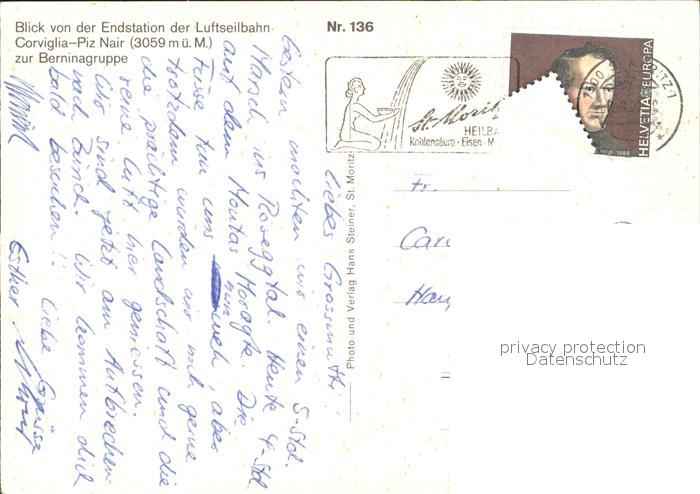 Blick von der Endstation der Luftseilbahn
Corviglia–Piz Nair (3059 m ü. M.)
zur Berninagruppe
Nr. 136
St. Moritz
HEILBA
Kohlensäure · Eisen · M
HELVETIA EUROPA
Photo und Verlag Hans Steiner, St. Moritz
Liebes Grossmutti!
Gestern machten wir einen 5-Std.
Marsch ins Roseggtal. Heute 4-Std
auf dem Muotas Muragl. Die
Füsse tun uns nun weh, aber
trotzdem würden wir noch gerne
die prächtige Landschaft und die
reine Luft hier geniessen.
Wir sind jetzt am Aufbrechen
nach Zürich. Wir kommen dich
bald besuchen!! Liebe Grüsse
Esther
Fr.
privacy protection
Datenschutz